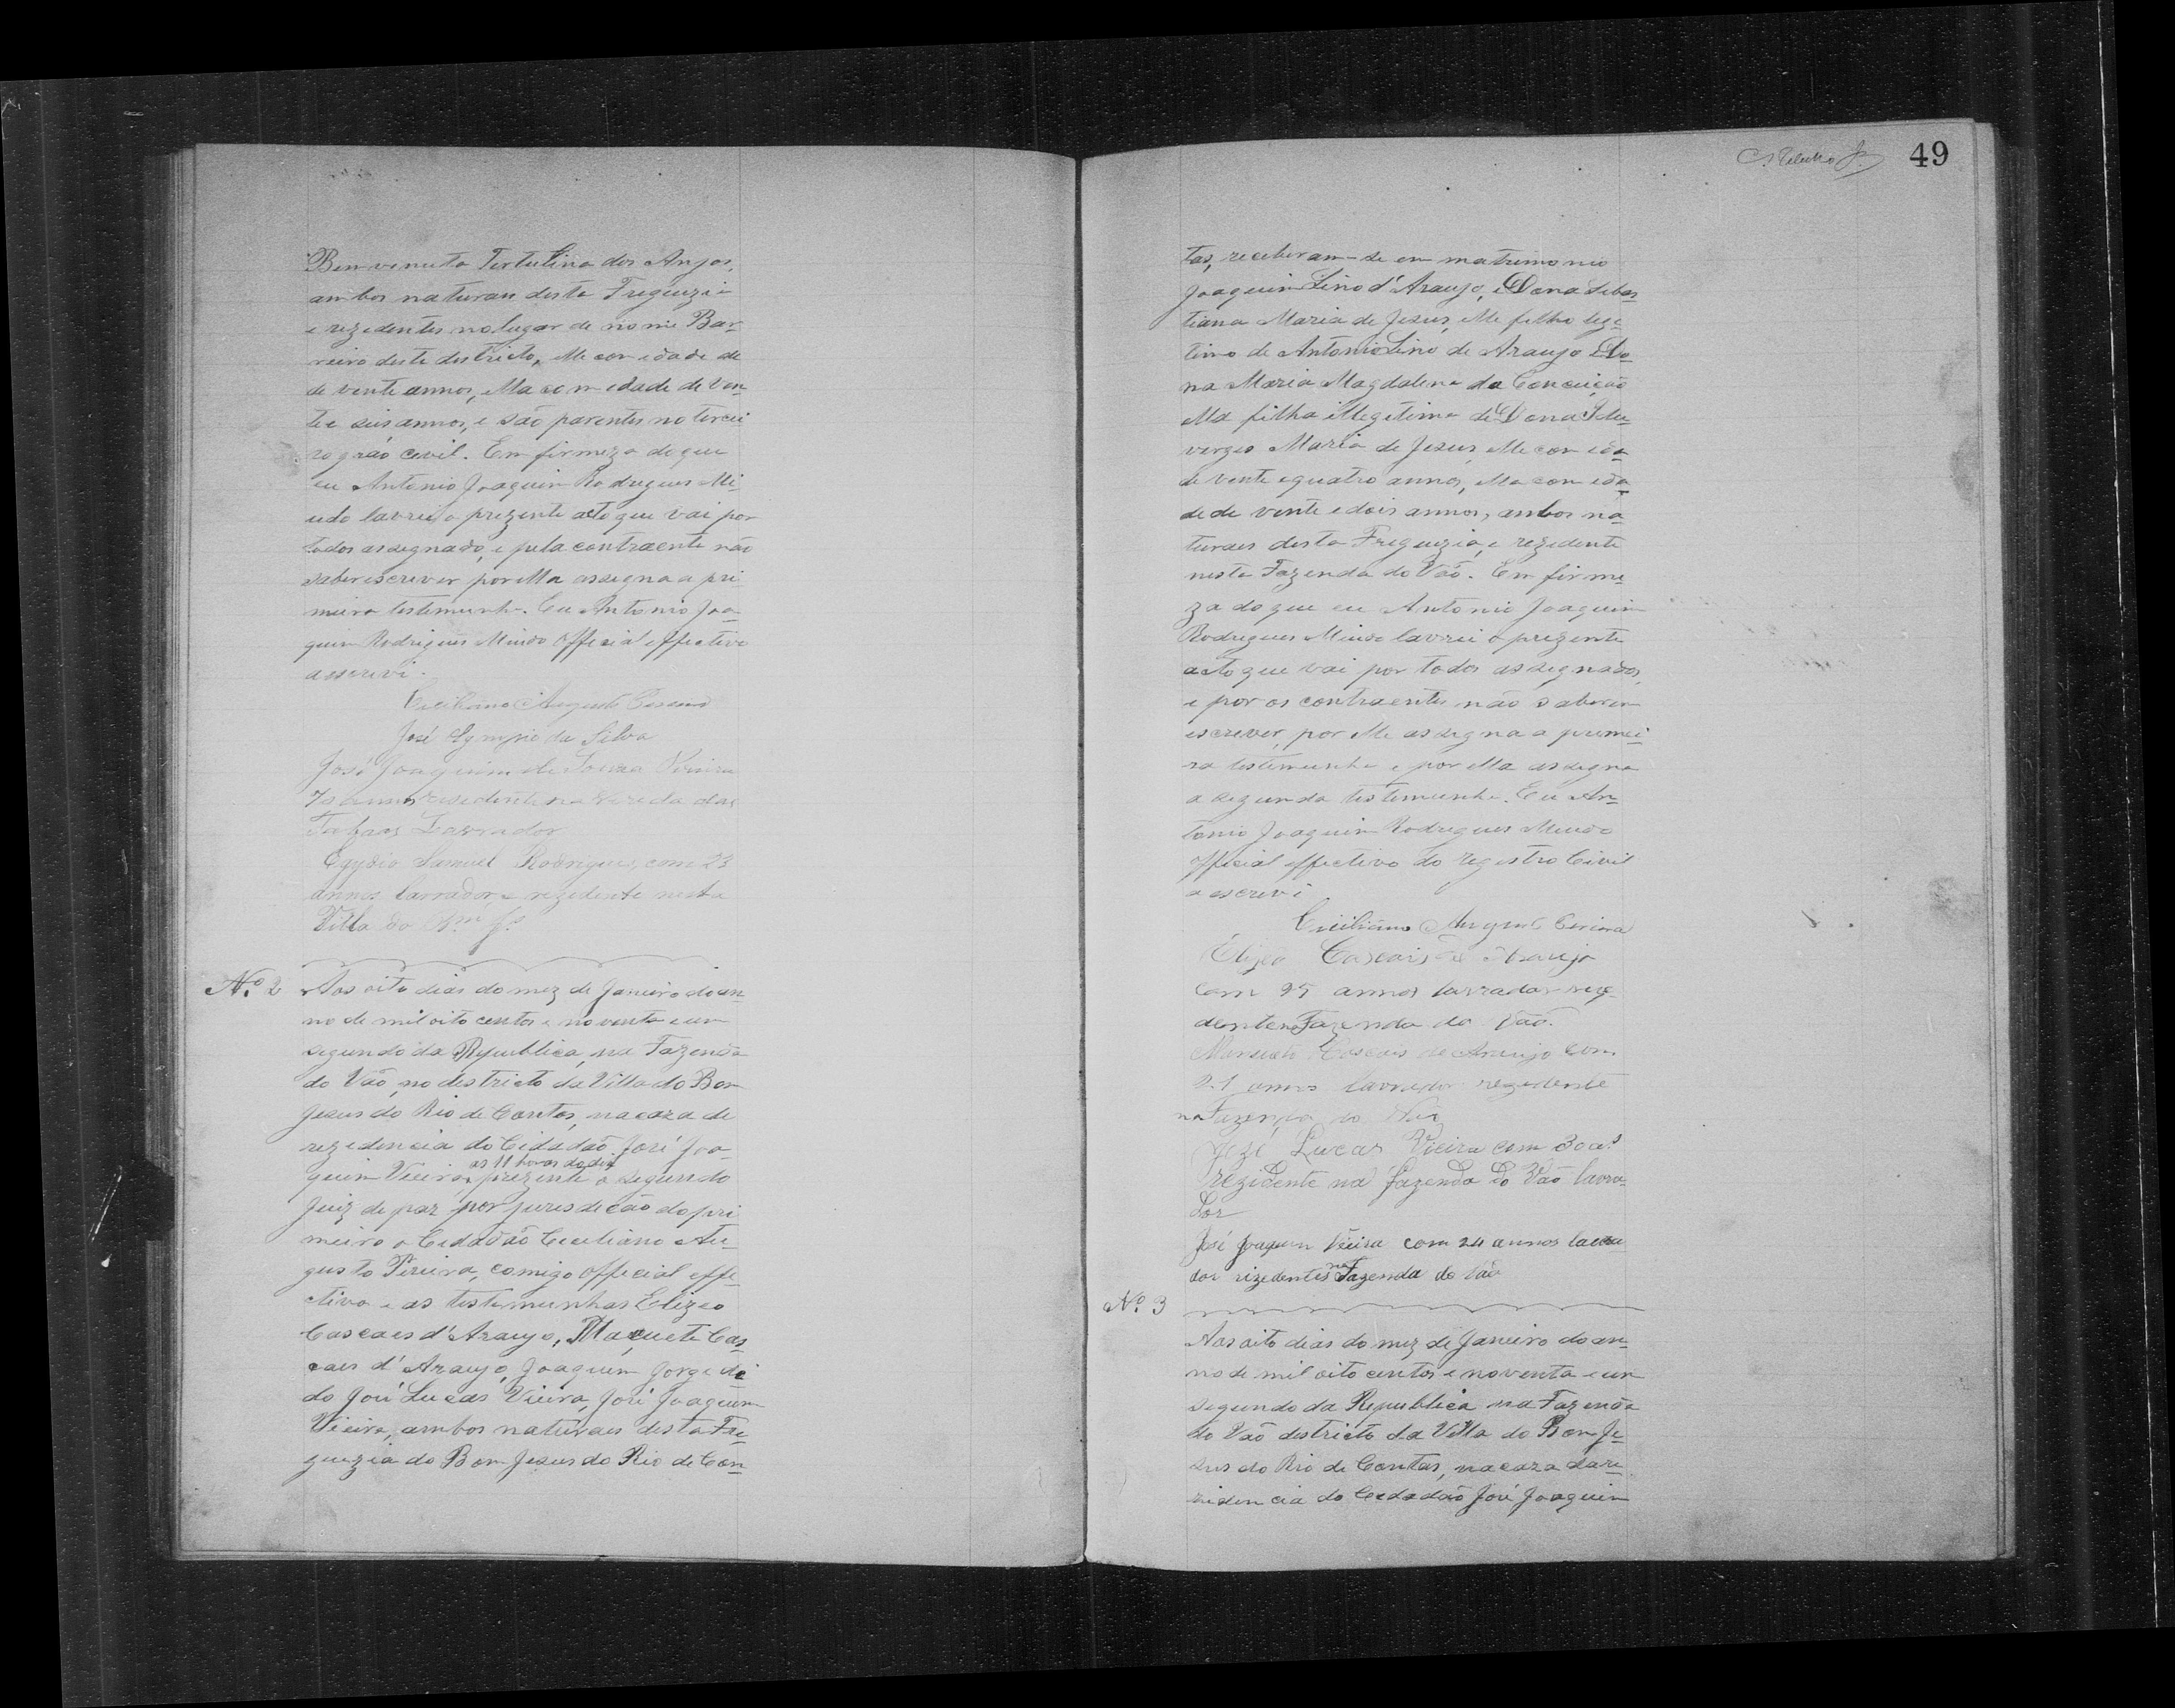 Benvenuta Tertulina dos Anjos,
ambos naturaes desta Freguezia
e rezedentes no lugar de nome Bar-
reiro deste destricto, elle com edade de
de vente annos, ella com edade de ven-
te e seis annos, e são parentes no tercei
ro gráo cevil. Em firmeza do que
eu Antonio Joaquim Rodrigues Mi-
udo lavrei o prezente acto que vai por
todos assegnado, e pela contraente não
saber escrever por ella assegna a pri
meira testemunha. Eu Antonio Joa-
quim Rodrigues Miudo Official effectivo
a escrevi.
Ceciliano Augusto
José Olympio da Silva
José Joaquim de Souza
annos residente na Vereda das
Lavrador
Egydio Samuel Rodrigues, com 23
annos lavrador e rezidente nesta
Villa do
N.º 2 Aos oito dias do mez de Janeiro do an-
no de mil oito centos e noventa e um
segundo da Republica, na Fazenda
do Vão, no destricto da Villa do Bom
Jesus do Rio de Contas, na caza de
rezedencia do Cidadão José Joa-
quim Vieira, as 11 horas do dia prezente o segundo
Juiz de paz por juresdecão do pri
meiro o Cidadão Ceciliano Au-
gusto Pereira, comigo official effe-
ctivo e as testemunhas Elizeo
Cascaes d'Araujo, Cas-
caes d'Araujo, Joaquim Jorge di
do José Lucas Vieira, José Joaquim
Vieira, ambos naturaes desta Fre-
guezia do Bom Jesus do Rio de Con-
49
tas, receberam-se em matrimonio
Joaquim Lino d'Araujo, e Dona Sebas-
tiana Maria de Jesus, elle filho lege-
timo de Antonio Lino de Araujo Do-
na Maria Magdalena da Conceição
ella filha illegetima de Dona
Maria de Jesus, elle com eda-
de vente e quatro annos, ella com eda-
de de vente e dois annos, ambos na-
turaes desta Freguezia, e rezedente
nesta Fazenda do Vão. Em firme-
za do que eu Antonio Joaquim
Rodrigues Miudo lavrei o prezente
acto que vai por todos assegnados,
e por os contraentes não saberem
escrever, por elle assegna a premei-
ra testemunha e por ella assegna
a segunda testemunha. Eu An-
tonio Joaquim Rodrigues Miudo
official effectivo do registro Civil
a escrevi
Ceciliano
Elizeo Cascais de Araujo
Com 25 annos lavrador rezi-
dente na Fazenda do Vão.
Cascais de Araujo com
21 annos lavrador rezedente
na Fazenda do
José Lucas Vieira com 30 a.s
rezidente na fazenda do Vão lavra-
dor
José Joaquim Vieira com 24 annos lavra
dor rizedentes na Fazenda do Vão
N.º 3
Aos oito dias do mez de Janeiro do an-
no de mil oito centos e noventa e um
segundo da Republica na Fazenda
do Vão destricto da Villa do Bom Je-
sus do Rio de Contas, na caza da re-
zidencia do Cedadão José Joaquim